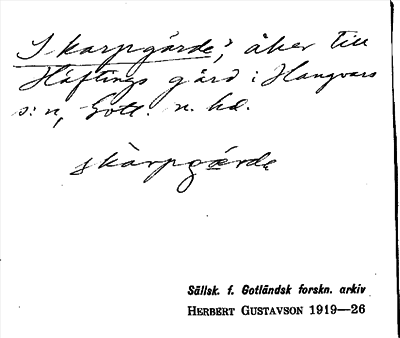 Skarpgärde, åker till
Häftings gård i Hangvars
s:n, Gotl. n. hd.
skàrpgǽrde
Sällsk. f. Gotländsk forskn. arkiv
HERBERT GUSTAVSON 1919—26